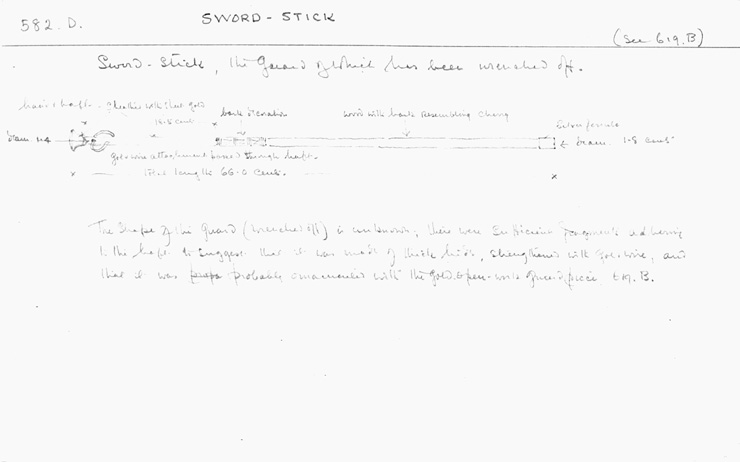 582. D.
SWORD - STICK
(See 619. B)
Sword - Stick, the Guard of which has been wrenched off.
shaft. Sheathed with sheet gold
16.5 cent
bark decoration
wood with bark resembling cherry
Silver ferrule
diam. 1.4
diam. 1.8 cents
Gold wire attachment passed through shaft.
Total length 66.0 cents.
The shape of the Guard (wrenched off) is unknown; there were sufficient fragments adhering
to the haft to suggest that it was made of thick hide, strengthened with gold wire, and
that it was probably ornamented with the gold open-work guard piece 619. B.